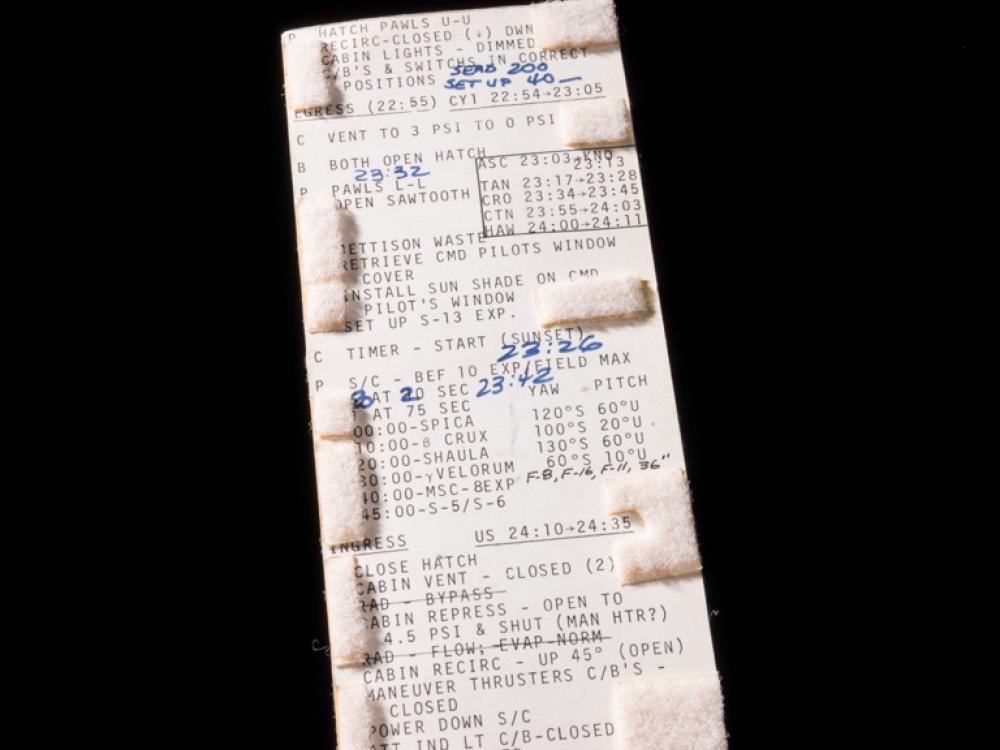 P HATCH PAWLS U-U
RECIRC-CLOSED (↓) DWN
CABIN LIGHTS - DIMMED
C/B'S & SWITCHS IN CORRECT
POSITIONS SEND 200
SET UP 40 —
EGRESS (22:55) CY1 22:54→23:05
C VENT TO 3 PSI TO 0 PSI
B BOTH OPEN HATCH
23:32
P PAWLS L-L
OPEN SAWTOOTH
ASC 23:03→KNO
23:13
TAN 23:17→23:28
CRO 23:34→23:45
CTN 23:55→24:03
HAW 24:00→24:11
JETTISON WASTE
RETRIEVE CMD PILOTS WINDOW
COVER
INSTALL SUN SHADE ON CMD
PILOT'S WINDOW
SET UP S-13 EXP.
C TIMER - START (SUNSET)
23:26
P S/C - BEF 10 EXP/FIELD MAX
AT 20 SEC 23:42
YAW PITCH
AT 75 SEC
00:00-SPICA 120°S 60°U
10:00-β CRUX 100°S 20°U
20:00-SHAULA 130°S 60°U
30:00-γVELORUM 60°S 10°U
40:00-MSC-8EXP F-8, F-16, F-11, 36"
45:00-S-5/S-6
INGRESS US 24:10→24:35
CLOSE HATCH
CABIN VENT - CLOSED (2)
RAD - BYPASS
CABIN REPRESS - OPEN TO
4.5 PSI & SHUT (MAN HTR?)
RAD - FLOW; EVAP-NORM
CABIN RECIRC - UP 45° (OPEN)
MANEUVER THRUSTERS C/B'S -
CLOSED
POWER DOWN S/C
ATT IND LT C/B-CLOSED